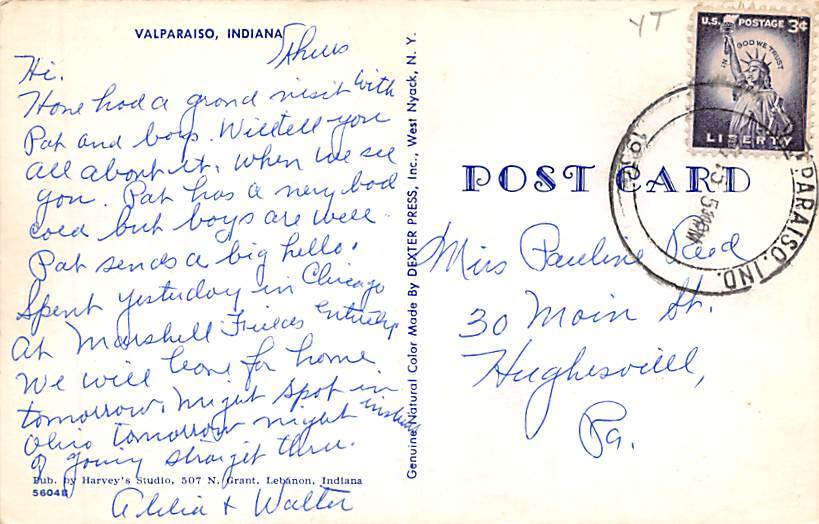 VALPARAISO, INDIANA
Thurs
Hi.
Have had a grand visit with
Pat and boys. Will tell you
all about it, when we see
you. Pat has a very bad
cold but boys are well.
Pat sends a big hello.
Spent yesterday in Chicago
at Marshell Fields
We will leave for home
tomorrow. might stop in
Ohio tomorrow night instead
of going straight thru.
Pub. by Harvey's Studio, 507 N. Grant, Lebanon, Indiana
5604B
& Walter
Genuine Natural Color Made By DEXTER PRESS, Inc., West Nyack, N. Y.
YT
U.S. POSTAGE 3¢
IN GOD WE TRUST
LIBERTY
VALPARAISO, IND.
15
PM
POST CARD
Miss Pauline Reed
30 Main St.
Hughesville,
Pa.